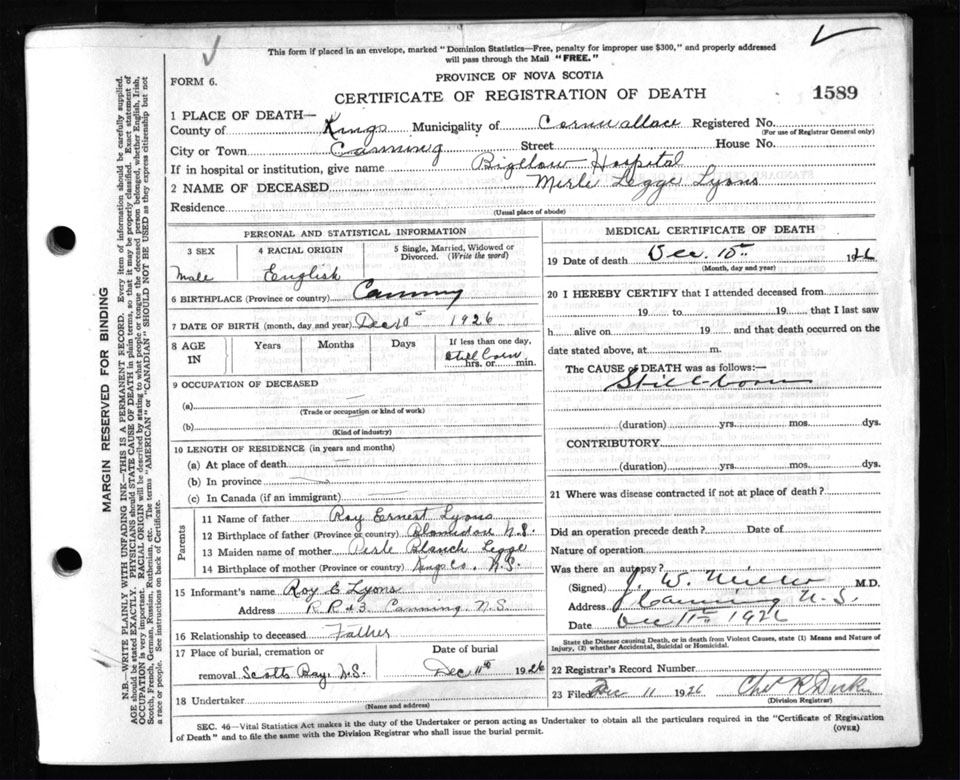 This form if placed in an envelope, marked "Dominion Statistics—Free, penalty for improper use $300," and properly addressed
will pass through the Mail "FREE."
FORM 6.
PROVINCE OF NOVA SCOTIA
CERTIFICATE OF REGISTRATION OF DEATH
1589
1 PLACE OF DEATH—
County of Kings Municipality of Cornwallace Registered No.
(For use of Registrar General only)
City or Town Canning Street House No.
If in hospital or institution, give name Bigelow Hospital
2 NAME OF DECEASED Merle Legge Lyons
Residence
(Usual place of abode)
PERSONAL AND STATISTICAL INFORMATION
3 SEX 4 RACIAL ORIGIN 5 Single, Married, Widowed or
Divorced. (Write the word)
Male English
6 BIRTHPLACE (Province or country) Canning
7 DATE OF BIRTH (month, day and year) Dec 10th 1926
8 AGE Years Months Days If less than one day,
IN Still born
hrs. or min.
9 OCCUPATION OF DECEASED
(a)
(Trade or occupation or kind of work)
(b)
(Kind of industry)
10 LENGTH OF RESIDENCE (in years and months)
(a) At place of death
(b) In province
(c) In Canada (if an immigrant)
Parents
11 Name of father Roy Ernest Lyons
12 Birthplace of father (Province or country) Blomidon N.S.
13 Maiden name of mother Perle Blanch Legge
14 Birthplace of mother (Province or country) Kings Co. N.S.
15 Informant's name Roy E Lyons
Address R.R #3 Canning N.S.
16 Relationship to deceased Father
17 Place of burial, cremation or Date of burial
removal Scotts Bay, N.S. Dec 11th 1926
18 Undertaker
(Name and address)
MEDICAL CERTIFICATE OF DEATH
19 Date of death Dec. 10th 1926
(Month, day and year)
20 I HEREBY CERTIFY that I attended deceased from
19 to 19 that I last saw
h alive on 19 and that death occurred on the
date stated above, at m.
The CAUSE OF DEATH was as follows:—
Still-born
(duration) yrs. mos. dys.
CONTRIBUTORY
(duration) yrs. mos. dys.
21 Where was disease contracted if not at place of death?
Did an operation precede death? Date of
Nature of operation
Was there an autopsy?
(Signed) J. W. M.D.
Address Canning N.S.
Date Dec 11th 1926
State the Disease causing Death, or in death from Violent Causes, state (1) Means and Nature of
Injury, (2) whether Accidental, Suicidal or Homicidal.
22 Registrar's Record Number
23 Filed Dec 11 1926
(Division Registrar)
SEC. 46—Vital Statistics Act makes it the duty of the Undertaker or person acting as Undertaker to obtain all the particulars required in the "Certificate of Registration
of Death" and to file the same with the Division Registrar who shall issue the burial permit.
(OVER)
MARGIN RESERVED FOR BINDING
N.B.—WRITE PLAINLY WITH UNFADING INK—THIS IS A PERMANENT RECORD. Every item of information should be carefully supplied.
AGE should be stated EXACTLY. PHYSICIANS should STATE CAUSE OF DEATH in plain terms, so that it may be properly classified. Exact statement of
OCCUPATION is very important. RACIAL ORIGIN will be described by stating to what people or tongue the deceased person belonged, whether English, Irish,
Scotch, French, German, Russian, Ruthenian, etc. The terms "AMERICAN" or "CANADIAN" SHOULD NOT BE USED as they express citizenship but not
a race or people. See instructions on back of Certificate.